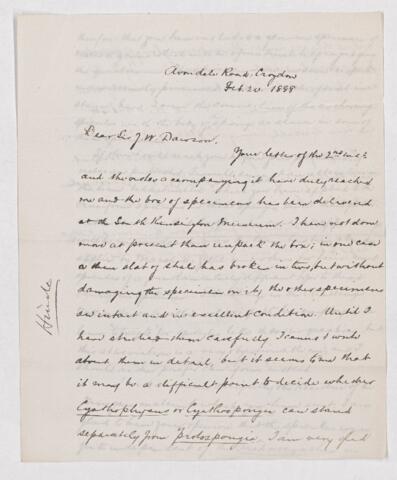 Avondale Road, Croydon
Feb. 20. 1888
Dear Sir J. W. Dawson,
Your letter of the 2nd inst.
and the slides accompanying it have duly reached
me and the box of specimens has been delivered
at the South Kensington Museum. I have not done
more at present than unpack the box; in one case
a thin slab of shale has broken in two, but without
damaging the specimen on it, the other specimens
are intact and in excellent condition. Until I
have studied them carefully I cannot write
about them in detail, but it seems to me that
it may be a difficult point to decide whether
Cyathophycus or Cyathospongia can stand
separately from Protospongia. I am very glad
Hinde